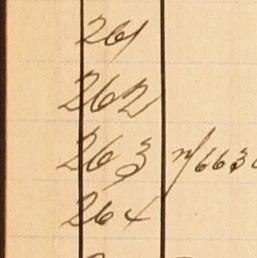 261
262
263 n/663
264